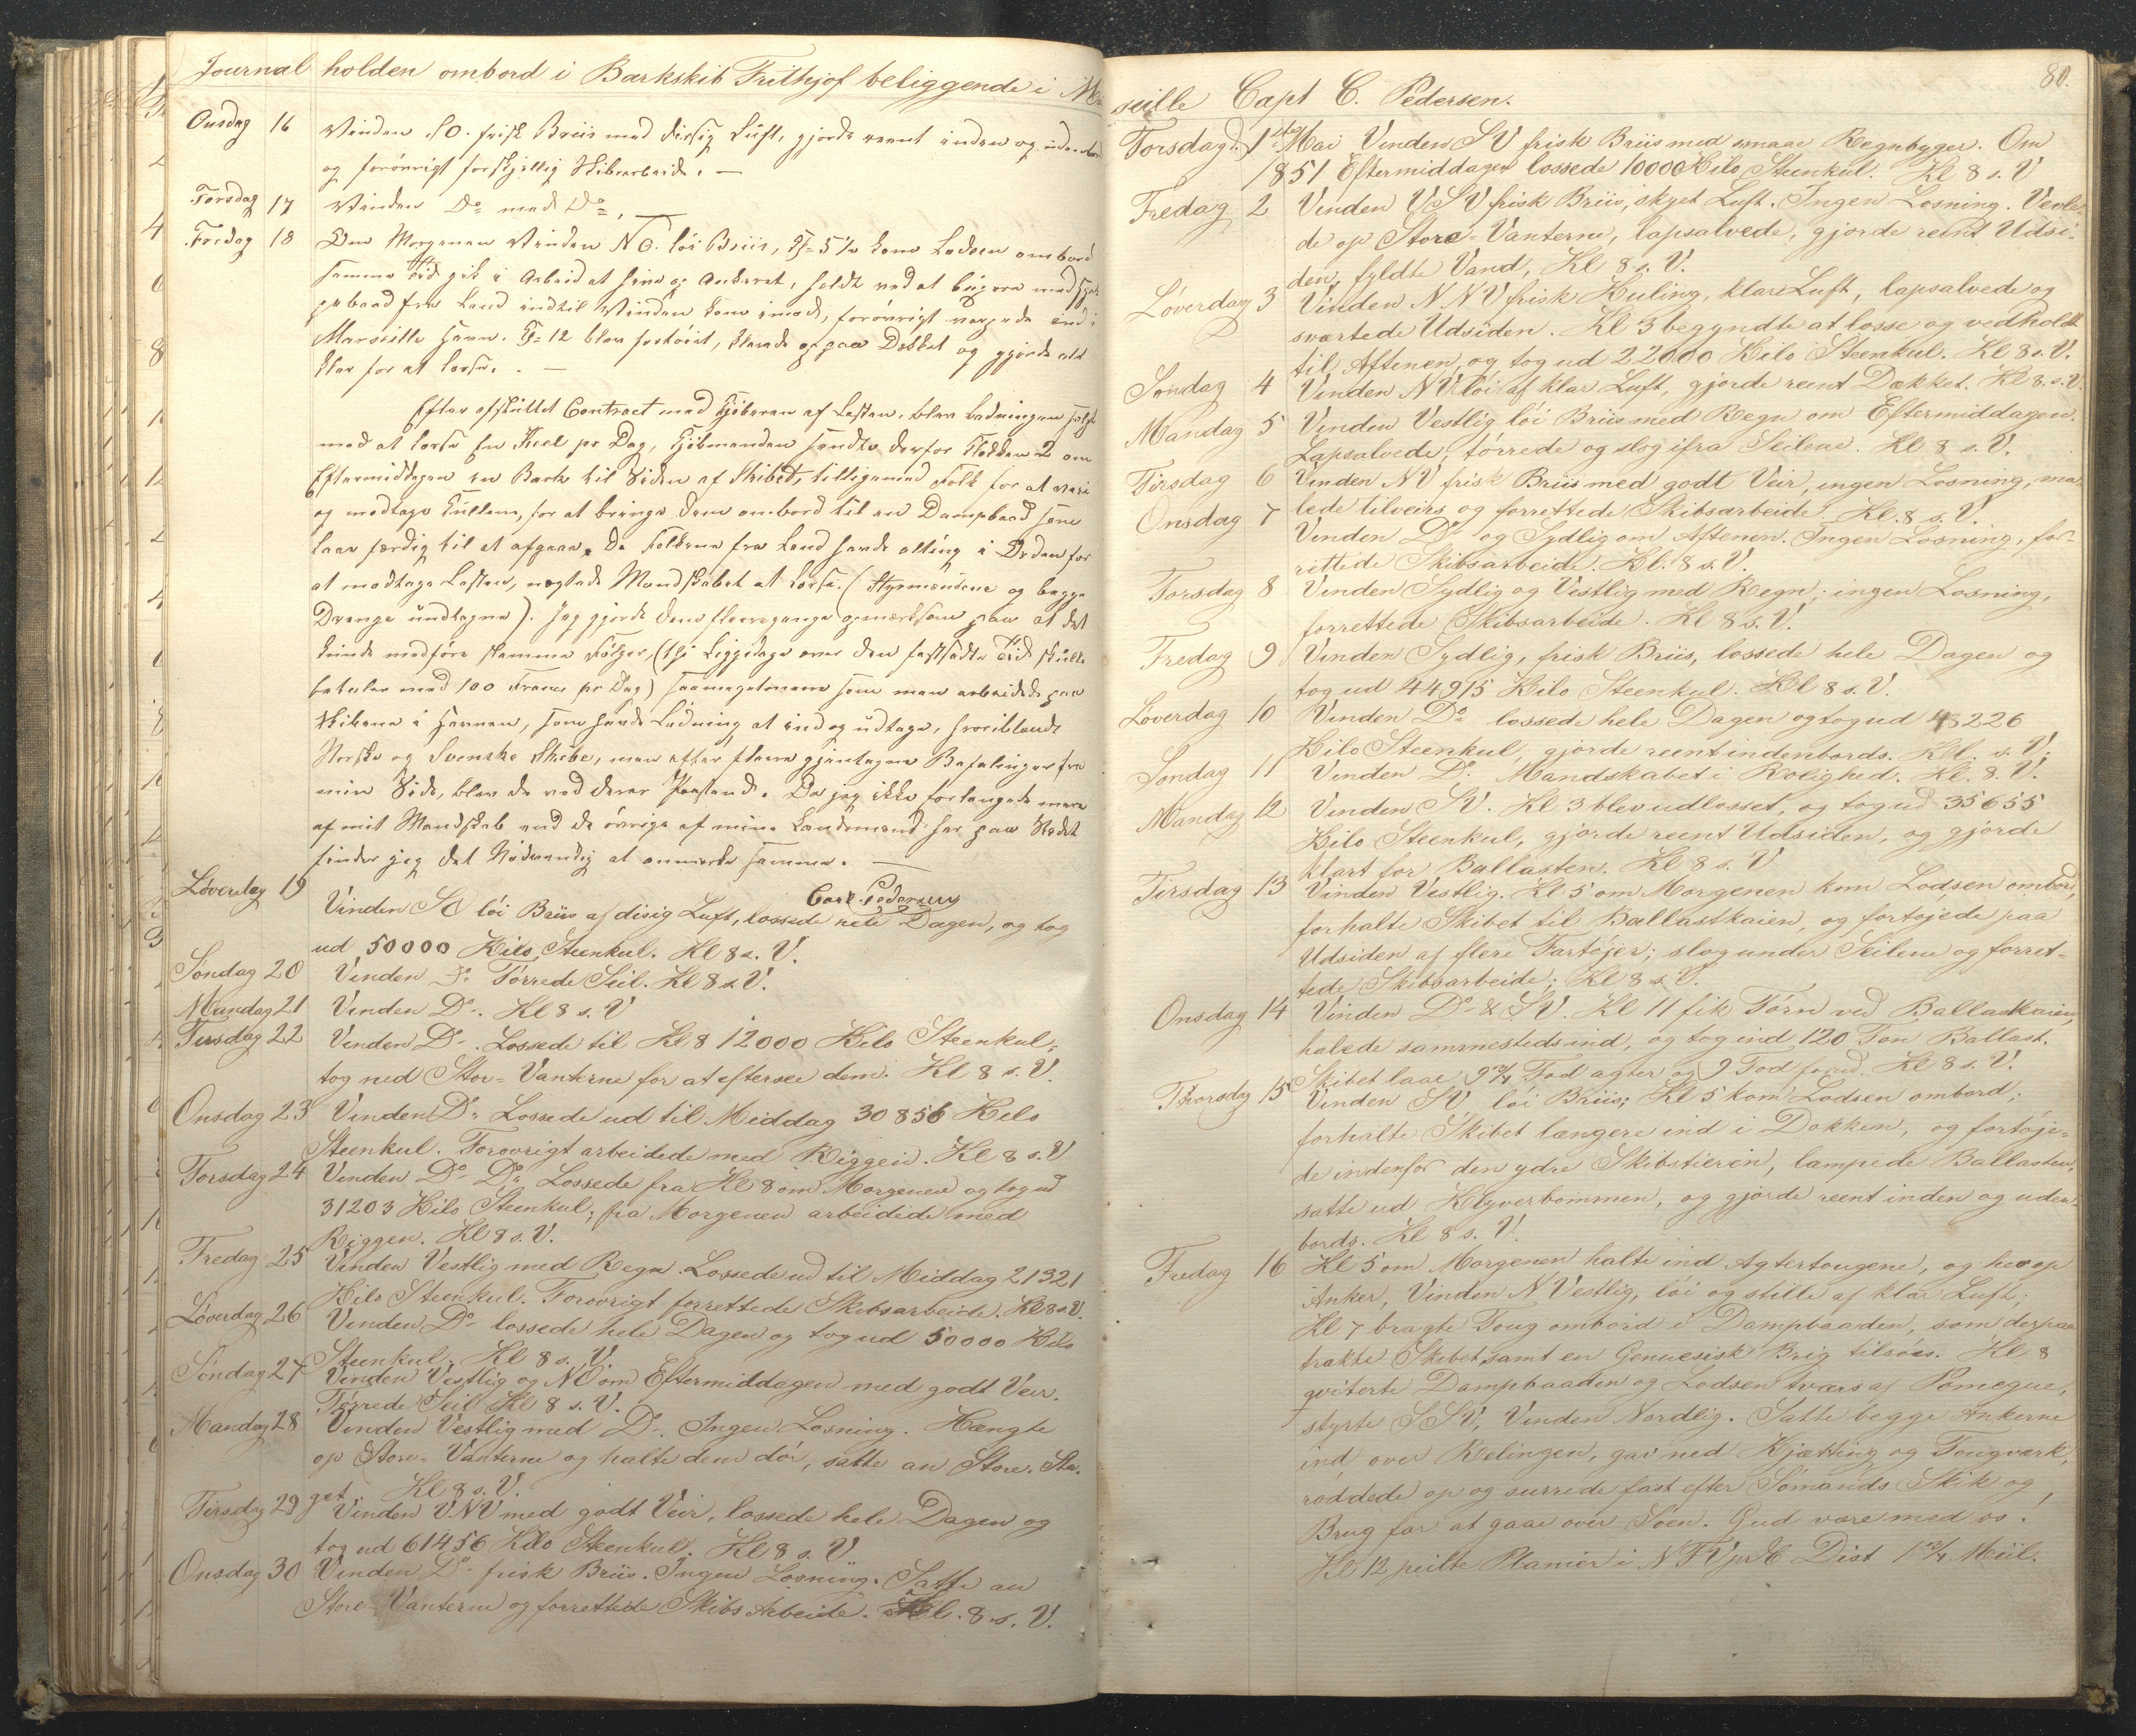 Journal holden ombord i Barkskib Frithjof beliggende i Mar
Onsdag 16 Vinden SO. frisk Briis med diisig Luft, gjorde reent inden og udenbords
og forövrigt forskjellig Skibsarbeide. —
Torsdag 17 Vinden Do med Do. —
Fredag 18 Om Morgenen Vinden NO. löi Briis, Kl 5½ kom Lodsen ombord
samme Tid gik i Arbeid at hive op Ankeret, holdt ved at bugsere med
gebaad fra Land indtil Vinden kom imod, forövrigt vargede ind i
Marseille Havn. Kl 12 blev fortöiet, klarede op paa Dækket og gjorde alt
klar for at losse. —
Efter afsluttet Contract med Kjöberen af Lasten, blev Ladningen solgt
med at losse En Keel pr Dag, Kjöbmanden sendte derfor Klokken 2 om
Eftermiddagen en Bark til Siden af Skibet, tilligemed Folk for at veie
og modtage Kullene, for at bringe dem ombord til en Dampbaad som
laae færdig til at afgaae. Da Folkene fra Land havde alting i Orden for
at modtage Lasten, nægtede Mandskabet at losse. (Styrmændene og begge
Drenge undtagne). Jeg gjorde dem fleregange opmærksom paa at det
kunde medföre slemme Fölger, (thi Liggedage over den fastsatte Tid skulle
betales med 100 Francs pr Dag) saameget mere som man arbeidede paa
Skibene i Havnen, som havde Ladning at ind og udtage, hvoriblandt
Norske og Svenske Skibe, men efter flere gjentagne Befalinger fra
min Side, blev de ved deres Paastand. Da jeg ikke forlangede mere
af mit Mandskab end de övrige af mine Landsmænd her paa Stedet
finder jeg det Nödvendig at anmærke samme. —
Carl Pedersen
Löverdag 19 Vinden SO löi Briis af disig Luft, lossede hele Dagen, og tog
ud 50000 Kilo Steenkul. Kl 8 s. V.
Söndag 20 Vinden Do Törrede Seil. Kl 8 s. V.
Mandag 21 Vinden Do. Kl 8 s. V
Tirsdag 22 Vinden Do. Lossede til Kl 8 12000 Kilo Steenkul;
tog ned Stor=Vanterne for at eftersee dem. Kl 8 s. V.
Onsdag 23 Vinden Do. Lossede ud til Middag 30856 Kilo
Steenkul. Forovrigt arbeidede med Riggen. Kl 8 s. V
Torsdag 24 Vinden Do Do. Lossede fra Kl 8 om Morgenen og tog ud
31203 Kilo Steenkul; fra Morgenen arbeidede med
Riggen. Kl 8 s. V.
Fredag 25 Vinden Vestlig med Regn. Lossede ud til Middag 21321
Kilo Steenkul. Forovrigt forrettede Skibsarbeide. Kl 8 s V.
Löverdag 26 Vinden Do lossede hele Dagen og tog ud 50000 Kilo
Steenkul. Kl 8 s. V.
Söndag 27 Vinden Vestlig og NO om Eftermiddagen med godt Veir.
Törrede Seil Kl 8 s. V.
Mandag 28 Vinden Vestlig med Do. Ingen Losning. Hængte
op Store=Vanterne og halte dem dör, satte an Store-Sta-
get. Kl 8 s. V.
Tirsdag 29 Vinden VNV med godt Veir, lossede hele Dagen og
tog ud 61456 Kilo Steenkul. Kl 8 s. V
Onsdag 30 Vinden Do frisk Briis. Ingen Losning. Satte an
Store Vanterne og forrettede Skibs Arbeide. Kl. 8. s. V.
80.
seille Capt C. Pedersen.
Torsdag d. 1ste Mai Vinden SV frisk Briis med smaae Regnbyger. Om
1851 Eftermiddagen lossede 10000 Kilo Steenkul. Kl 8 s. V
Fredag 2 Vinden VSV frisk Briis, skyet Luft. Ingen Losning. Vevle-
de op Store=Vanterne, lapsalvede, gjorde reent Udsi-
den, fyldte Vand, Kl 8 s. V.
Löverdag 3 Vinden NNV frisk Kuling, klar Luft, lapsalvede og
sværtede Udsiden. Kl 3 begyndte at losse og vedholdt
til Aftenen, og tog ud 22000 Kilo Steenkul. Kl 8 s. V.
Söndag 4 Vinden NV löi af klar Luft, gjorde reent Dækket. Kl 8. s. V.
Mandag 5 Vinden Vestlig löi Briis med Regn om Eftermiddagen.
Lapsalvede, törrede og slog ifra Seilene. Kl 8 s. V.
Tirsdag 6 Vinden NV frisk Briis med godt Veir, ingen Losning, ma-
lede tilveirs og forrettede Skibsarbeide. Kl. 8 s. V.
Onsdag 7 Vinden Do og Sydlig om Aftenen. Ingen Losning, for-
rettede Skibsarbeide. Kl. 8 s. V.
Torsdag 8 Vinden Sydlig og Vestlig med Regn; ingen Losning,
forrettede Skibsarbeide. Kl 8 s. V.
Fredag 9 Vinden Sydlig, frisk Briis, lossede hele Dagen og
tog ud 44915 Kilo Steenkul. Kl 8 s. V.
Löverdag 10 Vinden Do lossede hele Dagen og tog ud 48226
Kilo Steenkul, gjorde reent indenbords. Kl. s. V.
Söndag 11 Vinden Do. Mandskabet i Rolighed. Kl. 8. V.
Mandag 12 Vinden SV. Kl 3 blev udlosset, og tog ud 35655
Kilo Steenkul, gjorde reent Udsiden, og gjorde
klart for Ballasten. Kl 8 s. V
Tirsdag 13 Vinden Vestlig. Kl 5 om Morgenen kom Lodsen ombord,
forhalte Skibet til Ballastkaien, og fortöjede paa
Udsiden af flere Fartöjer; slog under Seilene og forret-
tede Skibsarbeide; Kl 8 s. V.
Onsdag 14 Vinden Do & SV. Kl 11 fik Törn ved Ballastkaien,
halede sammesteds ind, og tog ind 120 Ton Ballast.
Skibet laae 9¾ Fod agter og 9 Fod forud. Kl 8 s. V.
Thorsdag 15 Vinden SV löi Briis; Kl 5 kom Lodsen ombord;
forhalte Skibet længere ind i Dokken, og fortöje-
de indenfor den ydre Skibstieren, lampede Ballasten,
satte ud Klyverbommen, og gjorde reent inden og uden-
bords. Kl 8 s. V.
Fredag 16 Kl 5 om Morgenen halte ind Agtertougene, og hev op
Anker, Vinden N Vestlig, löi og stille af klar Luft;
Kl 7 bragte Toug ombord i Dampbaaden, som derpaa
trakte Skibet, samt en Genuesisk Brig tilsöes. Kl 8
qviterte Dampbaaden og Lodsen tværs af Pomegue,
styrte SSV, Vinden Nordlig. Satte begge Ankerne
ind over Relingen, gav ned Kjætting og Tougværk,
röddede op og surrede fast efter Sömands Skik og
Brug for at gaae over Söen. Gud være med os.
Kl 12 peilte Planier i NTV pr C Dist 1¾ Miil.